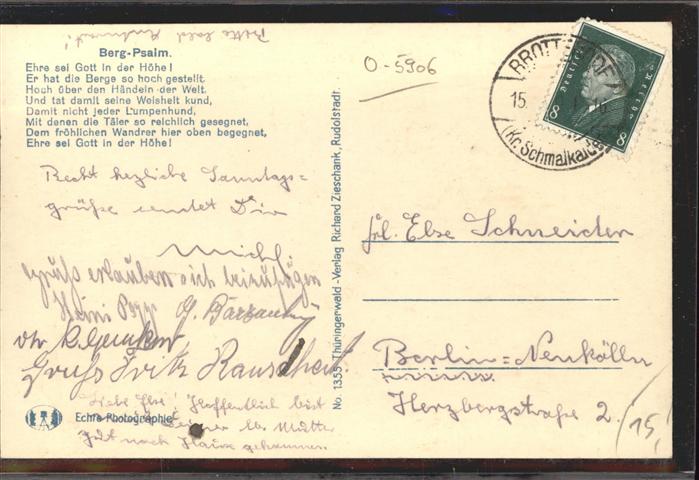 Bitte bald Antwort!
Berg-Psalm.
Ehre sei Gott in der Höhe!
Er hat die Berge so hoch gestellt.
Hoch über den Händeln der Welt.
Und tat damit seine Weisheit kund,
Damit nicht jeder Lumpenhund,
Mit denen die Täler so reichlich gesegnet,
Dem fröhlichen Wandrer hier oben begegnet,
Ehre sei Gott in der Höhe!
0-5906
15
(Kr. Schmalkalde
Deutsches Reich
8 8
Recht herzliche Sonntags=
grüße sendet Dir
Gruß erlauben sich beizufügen
Gruß Fritz Rauschert
Liebe Else! Hoffentlich bist
Deiner lb. Mutter
gut nach Hause gekommen
Echte Photographie
No. 1355 Thüringerwald-Verlag Richard Zieschank, Rudolstadt.
Frl. Else Schneider
Berlin=Neukölln
Herzbergstraße 2.
(15,